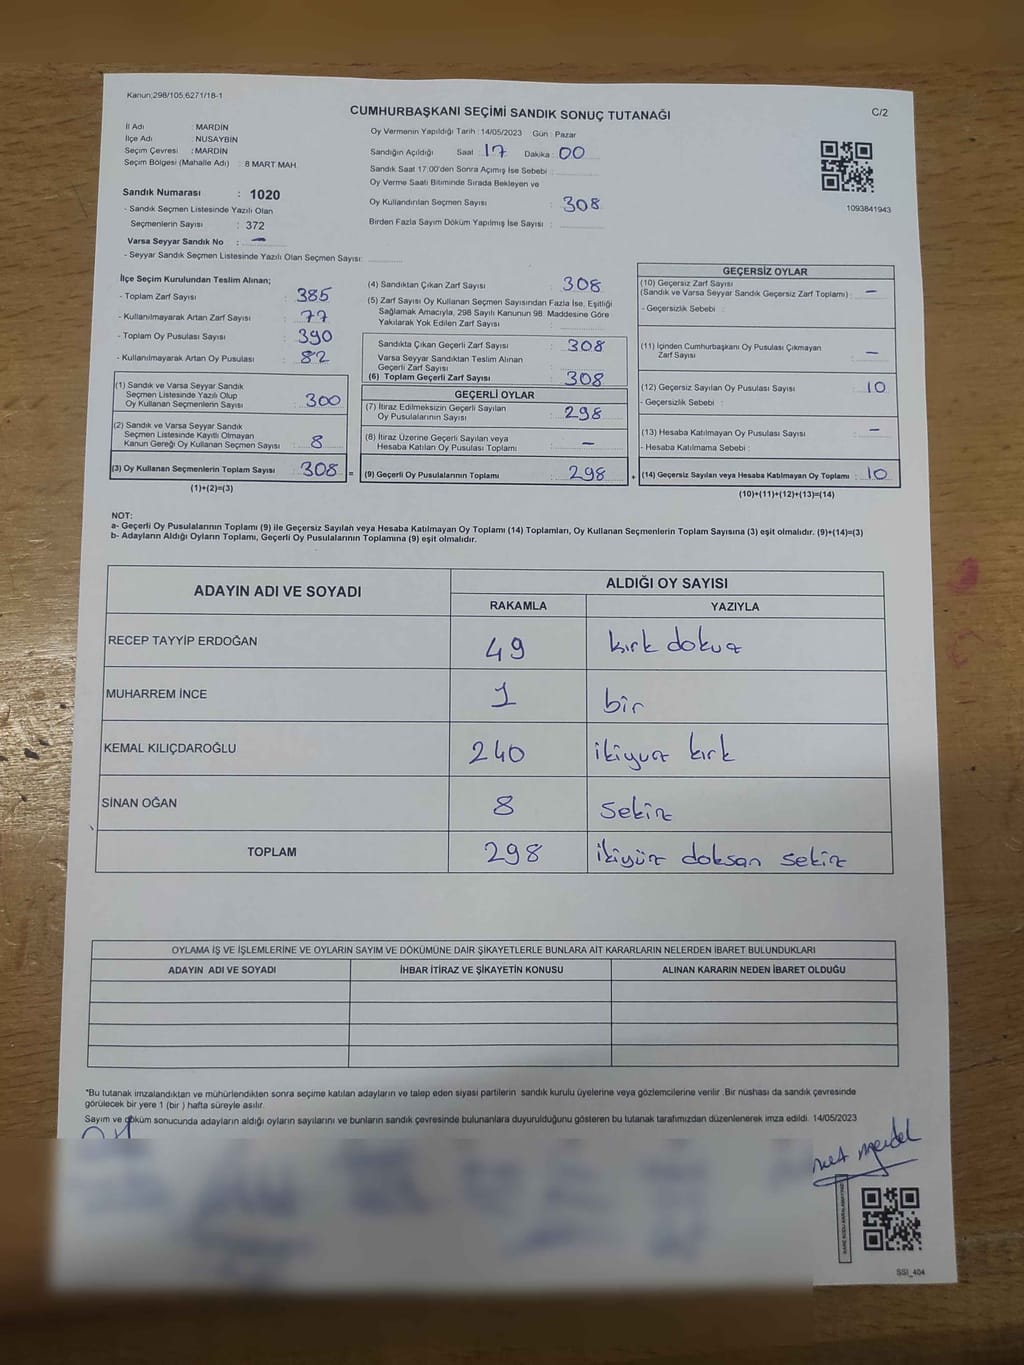 Kanun:298/105,6271/18-1
CUMHURBAŞKANI SEÇİMİ SANDIK SONUÇ TUTANAĞI
C/2
İl Adı : MARDİN
İlçe Adı : NUSAYBİN
Seçim Çevresi : MARDİN
Seçim Bölgesi (Mahalle Adı) : 8 MART MAH.
Oy Vermenin Yapıldığı Tarih : 14/05/2023 Gün : Pazar
Sandığın Açıldığı Saat : 17 Dakika : 00
Sandık Saat 17:00'den Sonra Açımış İse Sebebi :
Oy Verme Saati Bitiminde Sırada Bekleyen ve
Oy Kullandırılan Seçmen Sayısı : 308
Birden Fazla Sayım Döküm Yapılmış İse Sayısı :
1093841943
Sandık Numarası : 1020
- Sandık Seçmen Listesinde Yazılı Olan
Seçmenlerin Sayısı : 372
Varsa Seyyar Sandık No : -
- Seyyar Sandık Seçmen Listesinde Yazılı Olan Seçmen Sayısı:
İlçe Seçim Kurulundan Teslim Alınan;
- Toplam Zarf Sayısı : 385
- Kullanılmayarak Artan Zarf Sayısı : 77
- Toplam Oy Pusulası Sayısı : 390
- Kullanılmayarak Artan Oy Pusulası : 82
(1) Sandık ve Varsa Seyyar Sandık
Seçmen Listesinde Yazılı Olup
Oy Kullanan Seçmenlerin Sayısı : 300
(2) Sandık ve Varsa Seyyar Sandık
Seçmen Listesinde Kayıtlı Olmayan
Kanun Gereği Oy Kullanan Seçmen Sayısı : 8
(3) Oy Kullanan Seçmenlerin Toplam Sayısı : 308 =
(1)+(2)=(3)
(4) Sandıktan Çıkan Zarf Sayısı : 308
(5) Zarf Sayısı Oy Kullanan Seçmen Sayısından Fazla İse, Eşitliği
Sağlamak Amacıyla, 298 Sayılı Kanunun 98. Maddesine Göre
Yakılarak Yok Edilen Zarf Sayısı :
Sandıkta Çıkan Geçerli Zarf Sayısı : 308
Varsa Seyyar Sandıktan Teslim Alınan
Geçerli Zarf Sayısı :
(6) Toplam Geçerli Zarf Sayısı : 308
GEÇERLİ OYLAR
(7) İtiraz Edilmeksizin Geçerli Sayılan
Oy Pusulalarının Sayısı : 298
(8) İtiraz Üzerine Geçerli Sayılan veya
Hesaba Katılan Oy Pusulası Toplamı : -
(9) Geçerli Oy Pusulalarının Toplamı : 298 +
GEÇERSİZ OYLAR
(10) Geçersiz Zarf Sayısı
(Sandık ve Varsa Seyyar Sandık Geçersiz Zarf Toplamı) : -
- Geçersizlik Sebebi :
(11) İçinden Cumhurbaşkanı Oy Pusulası Çıkmayan
Zarf Sayısı : -
(12) Geçersiz Sayılan Oy Pusulası Sayısı : 10
- Geçersizlik Sebebi :
(13) Hesaba Katılmayan Oy Pusulası Sayısı : -
- Hesaba Katılmama Sebebi :
(14) Geçersiz Sayılan veya Hesaba Katılmayan Oy Toplamı : 10
(10)+(11)+(12)+(13)=(14)
NOT:
a- Geçerli Oy Pusulalarının Toplamı (9) ile Geçersiz Sayılan veya Hesaba Katılmayan Oy Toplamı (14) Toplamları, Oy Kullanan Seçmenlerin Toplam Sayısına (3) eşit olmalıdır. (9)+(14)=(3)
b- Adayların Aldığı Oyların Toplamı, Geçerli Oy Pusulalarının Toplamına (9) eşit olmalıdır.
ADAYIN ADI VE SOYADI ALDIĞI OY SAYISI
RAKAMLA YAZIYLA
RECEP TAYYİP ERDOĞAN 49 kırk dokuz
MUHARREM İNCE 1 bir
KEMAL KILIÇDAROĞLU 240 ikiyuz kırk
SİNAN OĞAN 8 sekiz
TOPLAM 298 ikiyüz doksan sekiz
OYLAMA İŞ VE İŞLEMLERİNE VE OYLARIN SAYIM VE DÖKÜMÜNE DAİR ŞİKAYETLERLE BUNLARA AİT KARARLARIN NELERDEN İBARET BULUNDUKLARI
ADAYIN ADI VE SOYADI İHBAR İTİRAZ VE ŞİKAYETİN KONUSU ALINAN KARARIN NEDEN İBARET OLDUĞU
*Bu tutanak imzalandıktan ve mühürlendikten sonra seçime katılan adayların ve talep eden siyasi partilerin sandık kurulu üyelerine veya gözlemcilerine verilir. Bir nüshası da sandık çevresinde
görülecek bir yere 1 (bir ) hafta süreyle asılır.
Sayım ve döküm sonucunda adayların aldığı oyların sayılarını ve bunların sandık çevresinde bulunanlara duyurulduğunu gösteren bu tutanak tarafımızdan düzenlenerek imza edildi. 14/05/2023
SSI_404